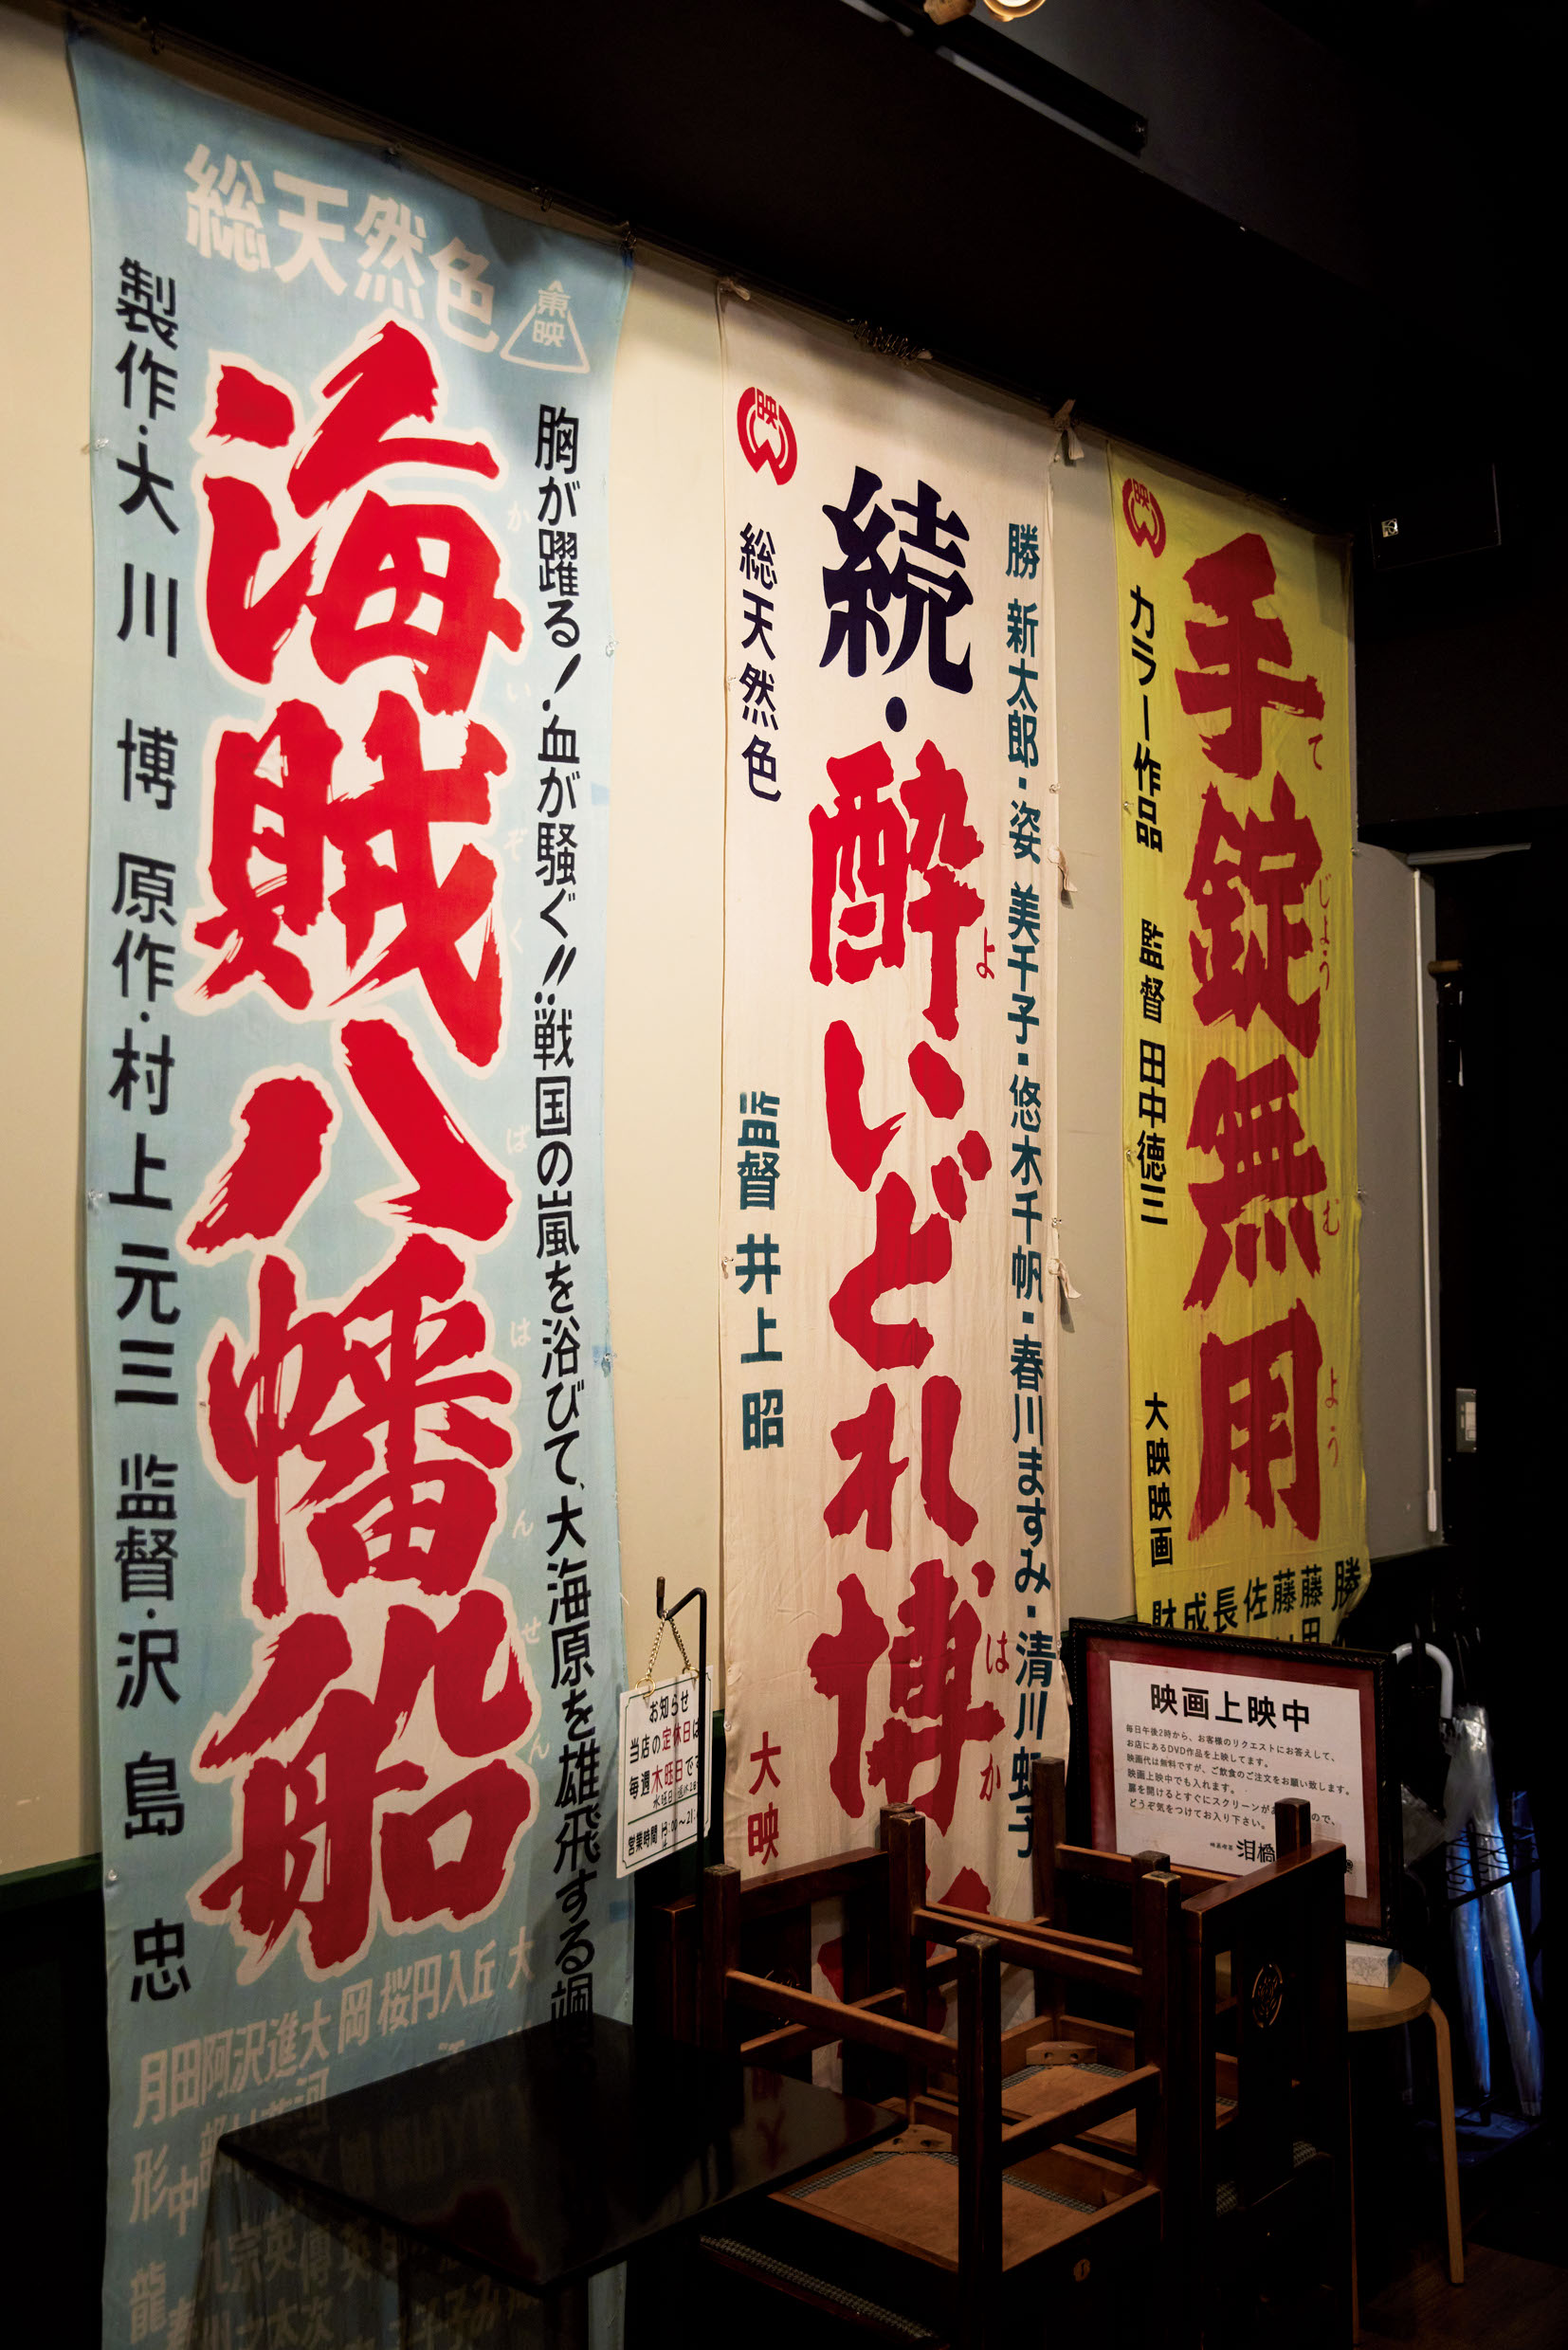 総天然色
東映
胸が躍る!・血が騒ぐ!!:戦国の嵐を浴びて、大海原を雄飛する
海賊八幡船
かいぞくばはんせん
製作・大川博 原作・村上元三 監督・沢島忠
大
丘
入
円
桜
岡
大
進
沢
阿
田
月
形
龍
映
勝 新太郎・姿 美千子・悠木千帆・春川ますみ・清川虹子
続・酔いどれ博
よ
はか
総天然色
監督 井上昭
大映
映
手錠無用
てじょうむよう
カラー作品 監督 田中徳三 大映映画
勝
藤
藤
佐
長
成
財
お知らせ
当店の定休日は
毎週木曜日です
営業時間
映画上映中
毎日午後2時から、お客様のリクエストにお答えして、
お店にあるDVD作品を上映してます。
映画代は無料ですが、ご飲食のご注文をお願い致します。
映画上映中でも入れます。
扉を開けるとすぐにスクリーンがあ ので、
どうぞ気をつけてお入り下さい。
泪橋